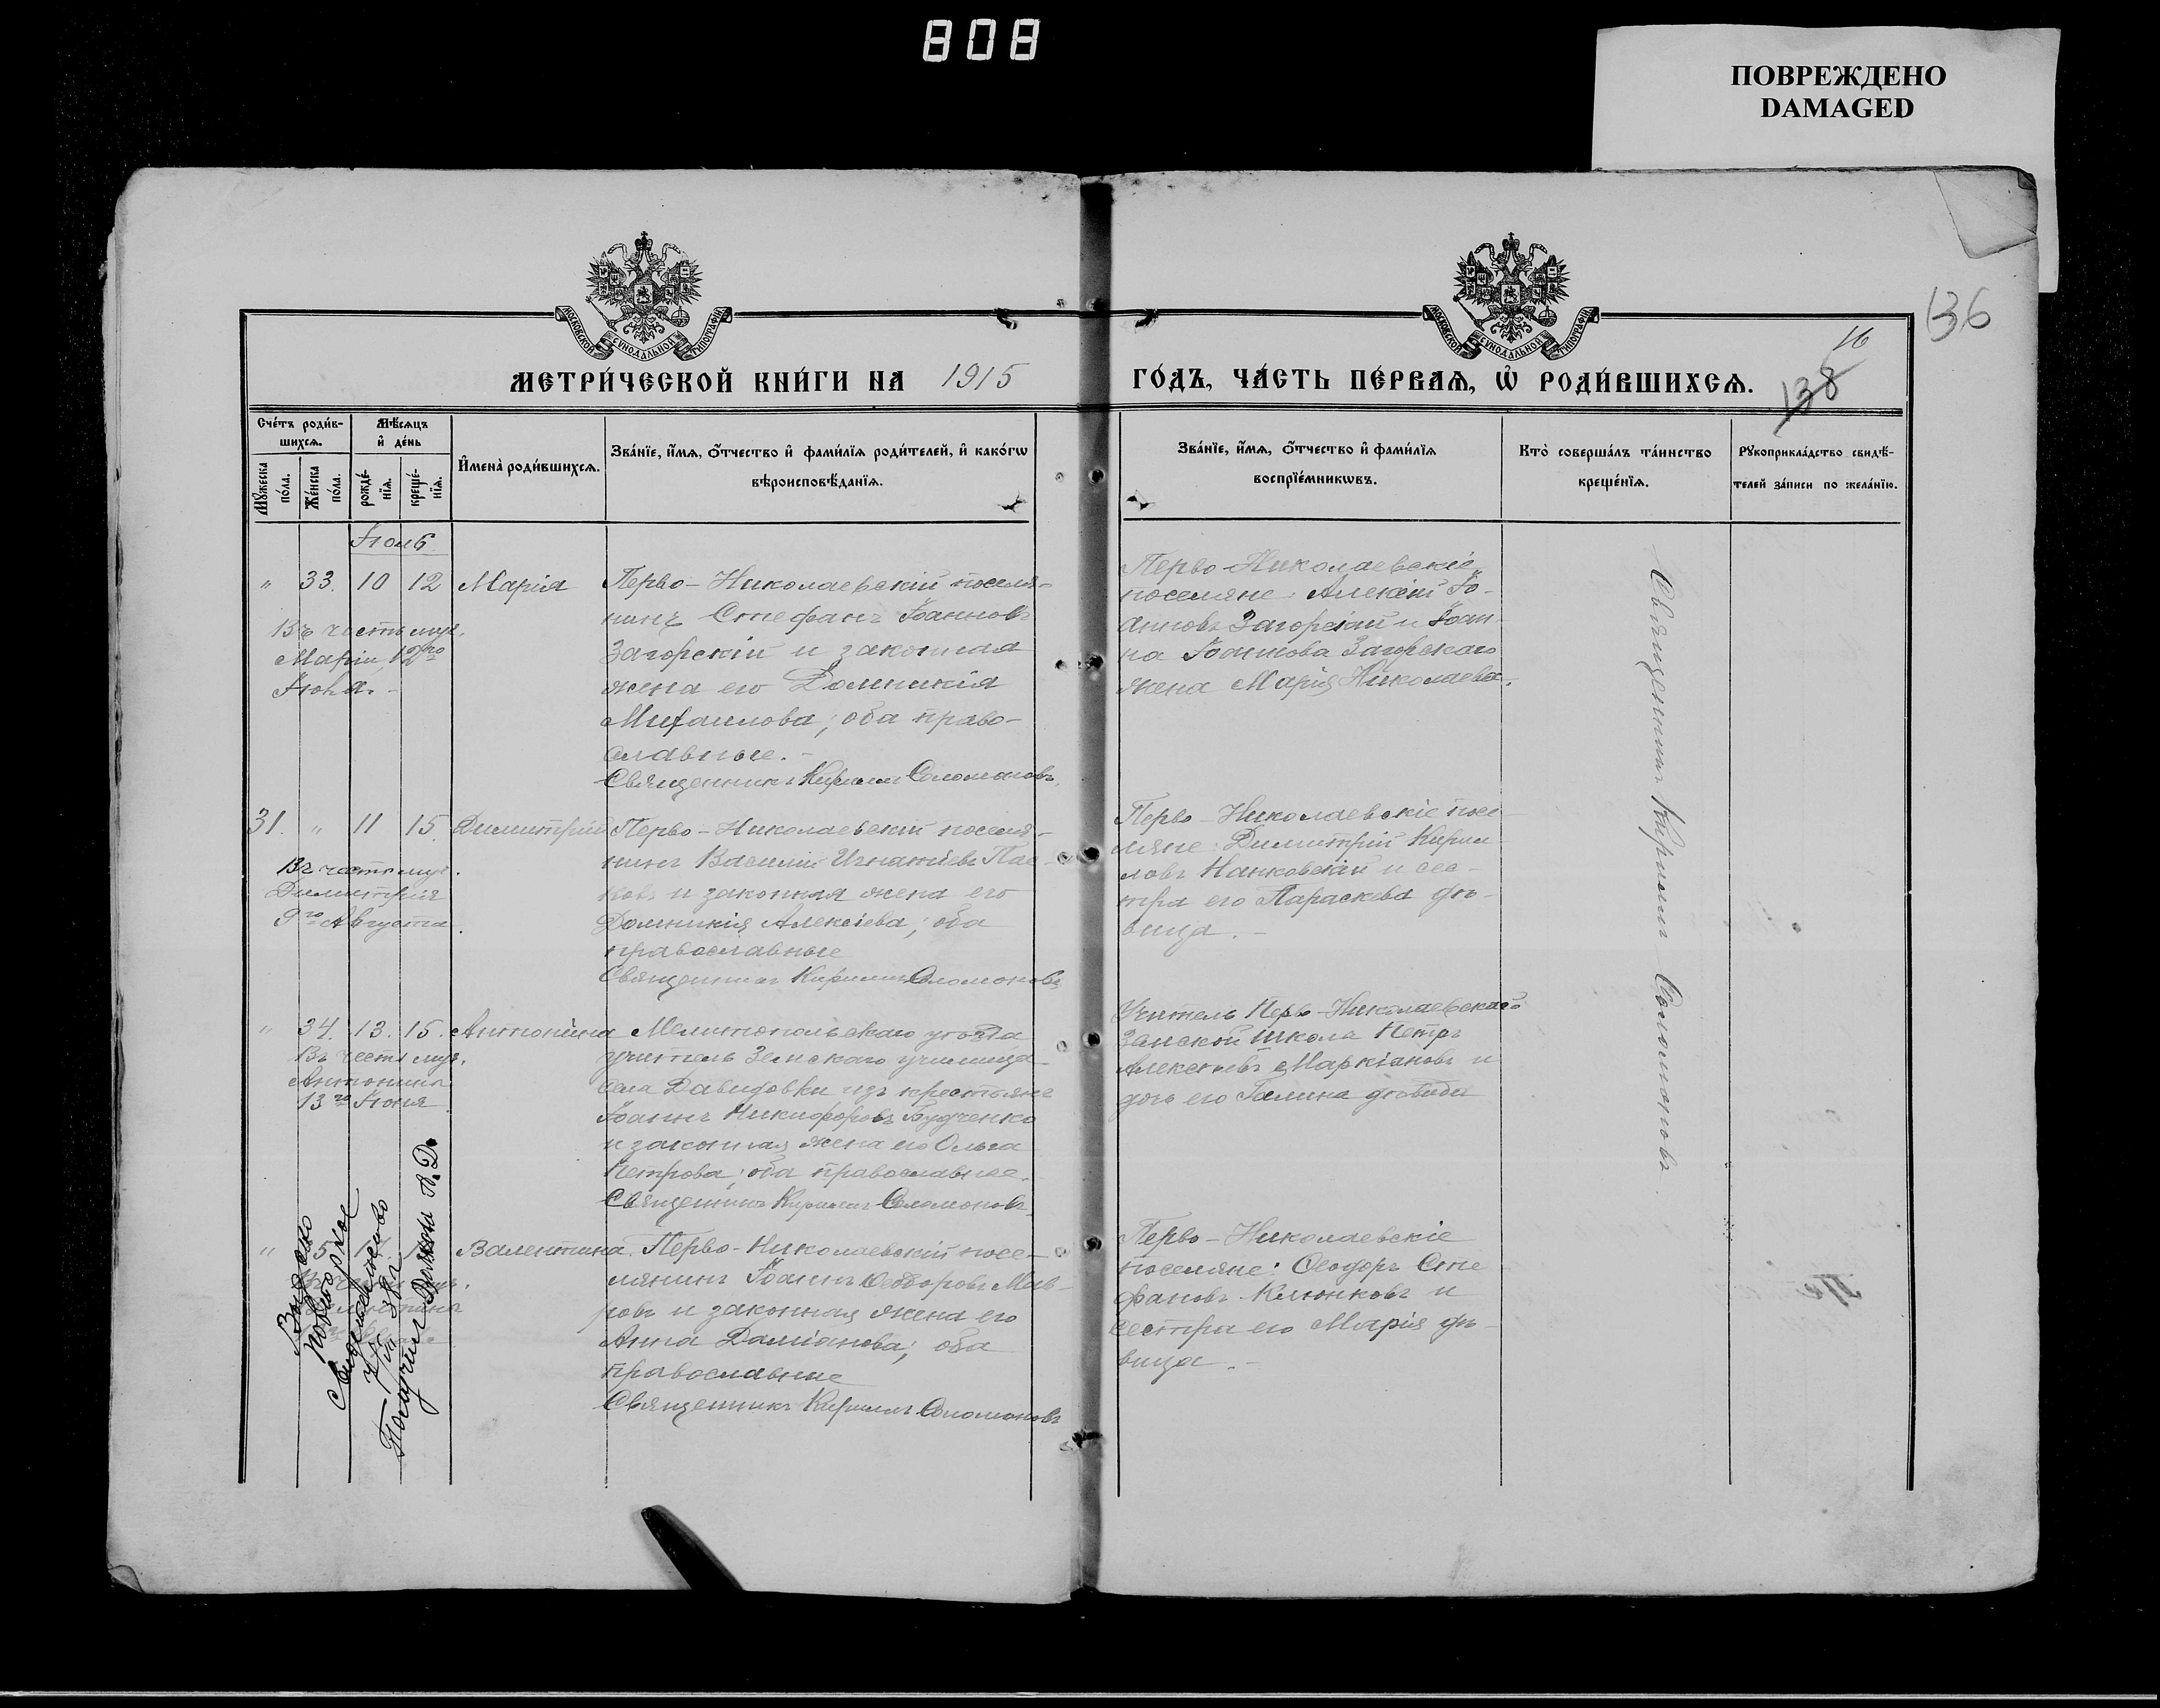 808
ПОВРЕЖДЕНО
DAMAGED
136
16
138
МОСКОВСКОЙ СѴНОДАЛЬНОЙ ТИПОГРАФІИ
МОСКОВСКОЙ СѴНОДАЛЬНОЙ ТИПОГРАФІИ
МЕТРИ́ЧЕСКОЙ КНИ́ГИ НА 1915
ГО́ДЪ, ЧА́СТЬ ПЕ́РВАѦ, Ѡ҆ РОДИ́ВШИХСѦ.
Сче́тъ роди́в-
шихсѧ.
Мꙋжеска
по́ла.
Же́нска
по́ла.
Мѣ́сѧцъ
и҆ де́нь
рожде́-
нїѧ.
креще́-
нїѧ.
И҆мена̀ роди́вшихсѧ.
Зва́нїе, и҆́мѧ, ѻ҆́тчество и҆ фами́лїѧ роди́телей, и҆ како́гѡ
вѣроисповѣ́данїѧ.
Зва́нїе, и҆́мѧ, ѻ҆́тчество и҆ фами́лїѧ
воспрїе́мникѡвъ.
Кто̀ соверша́лъ та́инство
креще́нїѧ.
Рꙋкоприкла́дство свидѣ́-
телей за́писи по жела́нїю.
Іюнь
" 33. 10 12 Марія
Въ честь муч.
Маріи, 12го
Іюня. -
Перво-Николаевскій поселя-
нинъ Стефанъ Іоанновъ
Загорскій и законная
жена его Домникія
Михаилова; оба право-
славные. -
Священникъ Кириллъ Соломоновъ.
Перво-Николаевскіе
поселяне: Алексій Іо-
анновъ Загорскій и Іоан-
на Іоаннова Загорскаго
жена Марія Николаева.
31. " 11 15. Димитрій
Въ честь муч.
Димитрія
9го Августа.
Перво-Николаевскій поселя-
нинъ Василій Игнатіевъ
и законная жена его
Домникія Алексіева; оба
православные
Священникъ Кириллъ Соломоновъ
Перво-Николаевскіе посе-
ляне: Димитрій Кирил-
ловъ Нанковскій и сес-
тра его Параскева дѣ-
вица. -
" 34. 13. 15. Антонина
Въ честь муч.
Антонины
13го Іюня
Мелитопольскаго уѣзда
учитель Земскаго училища
села Давидовки изъ крестьянъ
Іоаннъ Никифоровъ Будченко
и законная жена его Ольга
Петрова; оба православные.
Священникъ Кириллъ Соломоновъ.
Учитель Перво-Николаевскаго
Земской школа Петръ
Алексѣевъ Маркіановъ и
дочь его Галина дѣвица
Выдано
повторное
свидетельство
Получил
" Валентина.
Перво-Николаевскій посе-
лянинъ Іоаннъ Ѳеодоровъ Мав-
ровъ и законная жена его
Анна Даміанова; оба
православные
Священникъ Кириллъ Соломоновъ
Перво-Николаевскіе
поселяне: Ѳеодоръ Сте-
фановъ Клюнковъ и
сестра его Марія дѣ-
вица. -
Священникъ Кириллъ Соломоновъ.